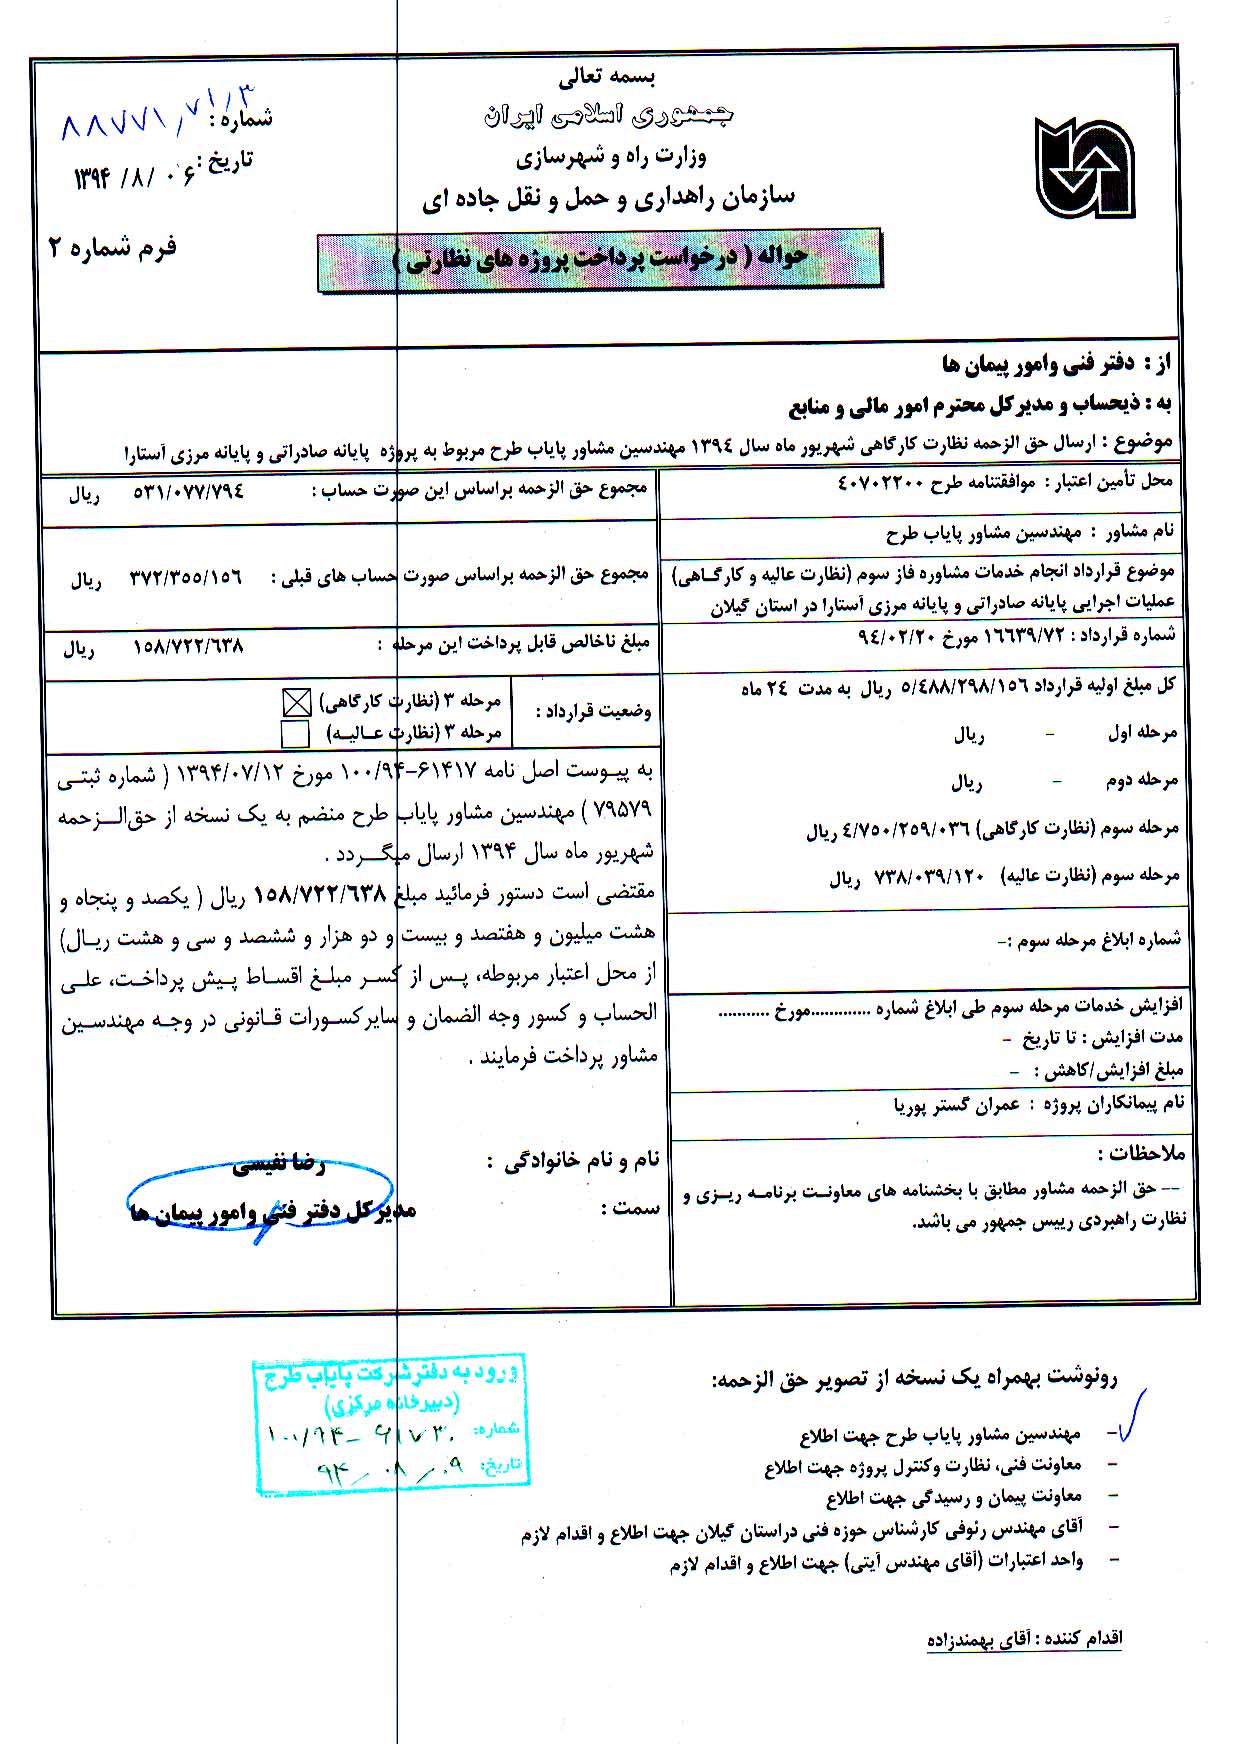 بسمه تعالی
جمهوری اسلامی ایران
وزارت راه و شهرسازی
سازمان راهداری و حمل و نقل جاده ای
شماره : ۸۸۷۷۱/۷۱/۳
تاریخ : ۱۳۹۴/۸/۰۶
فرم شماره ۲
حواله ( درخواست پرداخت پروژه های نظارتی )
از : دفتر فنی وامور پیمان ها
به : ذیحساب و مدیرکل محترم امور مالی و منابع
موضوع : ارسال حق الزحمه نظارت کارگاهی شهریور ماه سال ۱۳۹۴ مهندسین مشاور پایاب طرح مربوط به پروژه پایانه صادراتی و پایانه مرزی آستارا
محل تأمین اعتبار : موافقتنامه طرح ۴۰۷۰۲۲۰۰
نام مشاور : مهندسین مشاور پایاب طرح
موضوع قرارداد انجام خدمات مشاوره فاز سوم (نظارت عالیه و کارگاهی)
عملیات اجرایی پایانه صادراتی و پایانه مرزی آستارا در استان گیلان
شماره قرارداد : ۱۶۶۳۹/۷۲ مورخ ۹۴/۰۲/۲۰
کل مبلغ اولیه قرارداد ۵/۴۸۸/۲۹۸/۱۵۶ ریال به مدت ۲۴ ماه
مرحله اول - ریال
مرحله دوم - ریال
مرحله سوم (نظارت کارگاهی) ۴/۷۵۰/۲۵۹/۰۳۶ ریال
مرحله سوم (نظارت عالیه) ۷۳۸/۰۳۹/۱۲۰ ریال
شماره ابلاغ مرحله سوم :-
افزایش خدمات مرحله سوم طی ابلاغ شماره .............مورخ ...........
مدت افزایش : تا تاریخ -
مبلغ افزایش/کاهش : -
نام پیمانکاران پروژه : عمران گستر پوریا
ملاحظات :
-- حق الزحمه مشاور مطابق با بخشنامه های معاونت برنامه ریزی و
نظارت راهبردی رییس جمهور می باشد.
مجموع حق الزحمه براساس این صورت حساب : ۵۳۱/۰۷۷/۷۹۴ ریال
مجموع حق الزحمه براساس صورت حساب های قبلی : ۳۷۲/۳۵۵/۱۵۶ ریال
مبلغ ناخالص قابل پرداخت این مرحله : ۱۵۸/۷۲۲/۶۳۸ ریال
وضعیت قرارداد :
مرحله ۳ (نظارت کارگاهی)
مرحله ۳ (نظارت عالیه)
به پیوست اصل نامه ۶۱۴۱۷-۱۰۰/۹۴ مورخ ۱۳۹۴/۰۷/۱۲ ( شماره ثبتی
۷۹۵۷۹ ) مهندسین مشاور پایاب طرح منضم به یک نسخه از حق‌الزحمه
شهریور ماه سال ۱۳۹۴ ارسال میگردد .
مقتضی است دستور فرمائید مبلغ ۱۵۸/۷۲۲/۶۳۸ ریال ( یکصد و پنجاه و
هشت میلیون و هفتصد و بیست و دو هزار و ششصد و سی و هشت ریال)
از محل اعتبار مربوطه، پس از کسر مبلغ اقساط پیش پرداخت، علی
الحساب و کسور وجه الضمان و سایرکسورات قانونی در وجه مهندسین
مشاور پرداخت فرمایند .
نام و نام خانوادگی : رضا نفیسی
سمت : مدیرکل دفتر فنی وامور پیمان ها
رونوشت بهمراه یک نسخه از تصویر حق الزحمه:
- مهندسین مشاور پایاب طرح جهت اطلاع
- معاونت فنی، نظارت وکنترل پروژه جهت اطلاع
- معاونت پیمان و رسیدگی جهت اطلاع
- آقای مهندس رئوفی کارشناس حوزه فنی دراستان گیلان جهت اطلاع و اقدام لازم
- واحد اعتبارات (آقای مهندس آیتی) جهت اطلاع و اقدام لازم
اقدام کننده : آقای بهمندزاده
ورود به دفتر شرکت پایاب طرح
(دبیرخانه مرکزی)
شماره: ۱۰۰/۹۴-۶۱۷۳۰
تاریخ: ۹۴/۰۸/۰۹